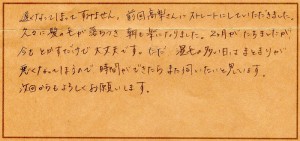 遅くなってしまってすみません。前回高梨さんにストレートにしていただきました。
久々に髪の毛が落ちつき朝も楽になりました。2ヶ月がたちましたが
今もとかすだけで大丈夫です。ただ湿気の多い日はまとまりが
悪くなってしまうので時間ができたらまた伺いたいと思います。
次回からもよろしくお願いします。